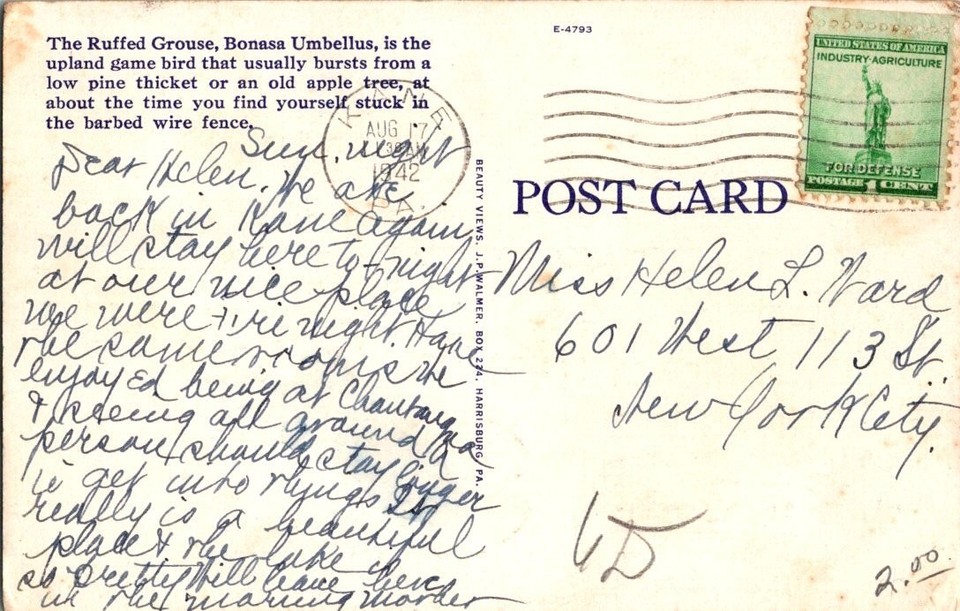 The Ruffed Grouse, Bonasa Umbellus, is the
upland game bird that usually bursts from a
low pine thicket or an old apple tree, at
about the time you find yourself stuck in
the barbed wire fence.
E-4793
UNITED STATES OF AMERICA
INDUSTRY·AGRICULTURE
FOR DEFENSE
POSTAGE 1 CENT
KANE
AUG 17
1942
PA.
POST CARD
BEAUTY VIEWS, J.P.WALMER, BOX 224, HARRISBURG, PA.
Sun. night
Dear Helen. We are
back in Kane again
will stay here to-night
at our nice place
we were night. Have
the same rooms We
enjoyed being at Chautauqua
& seeing all around A
person should stay longer
to get into things It
really is a beautiful
place & the lake is
so pretty Will leave here
in the morning Mother
Miss Helen L. Ward
601 West 113 St.
New York City.
2.00